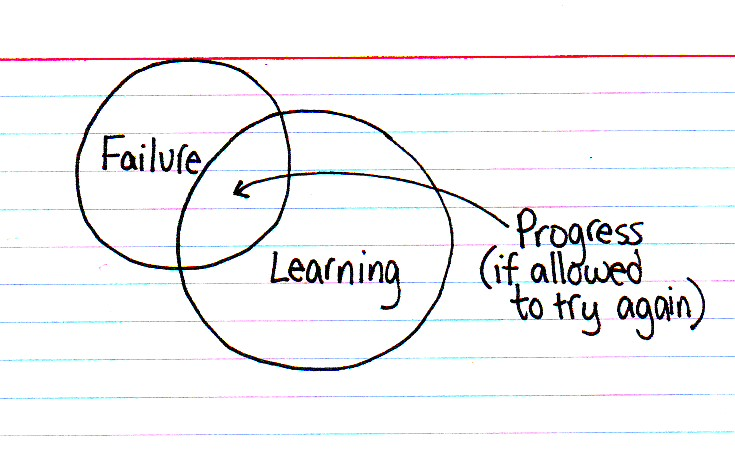 Failure
Learning
Progress
(if allowed
to try again)